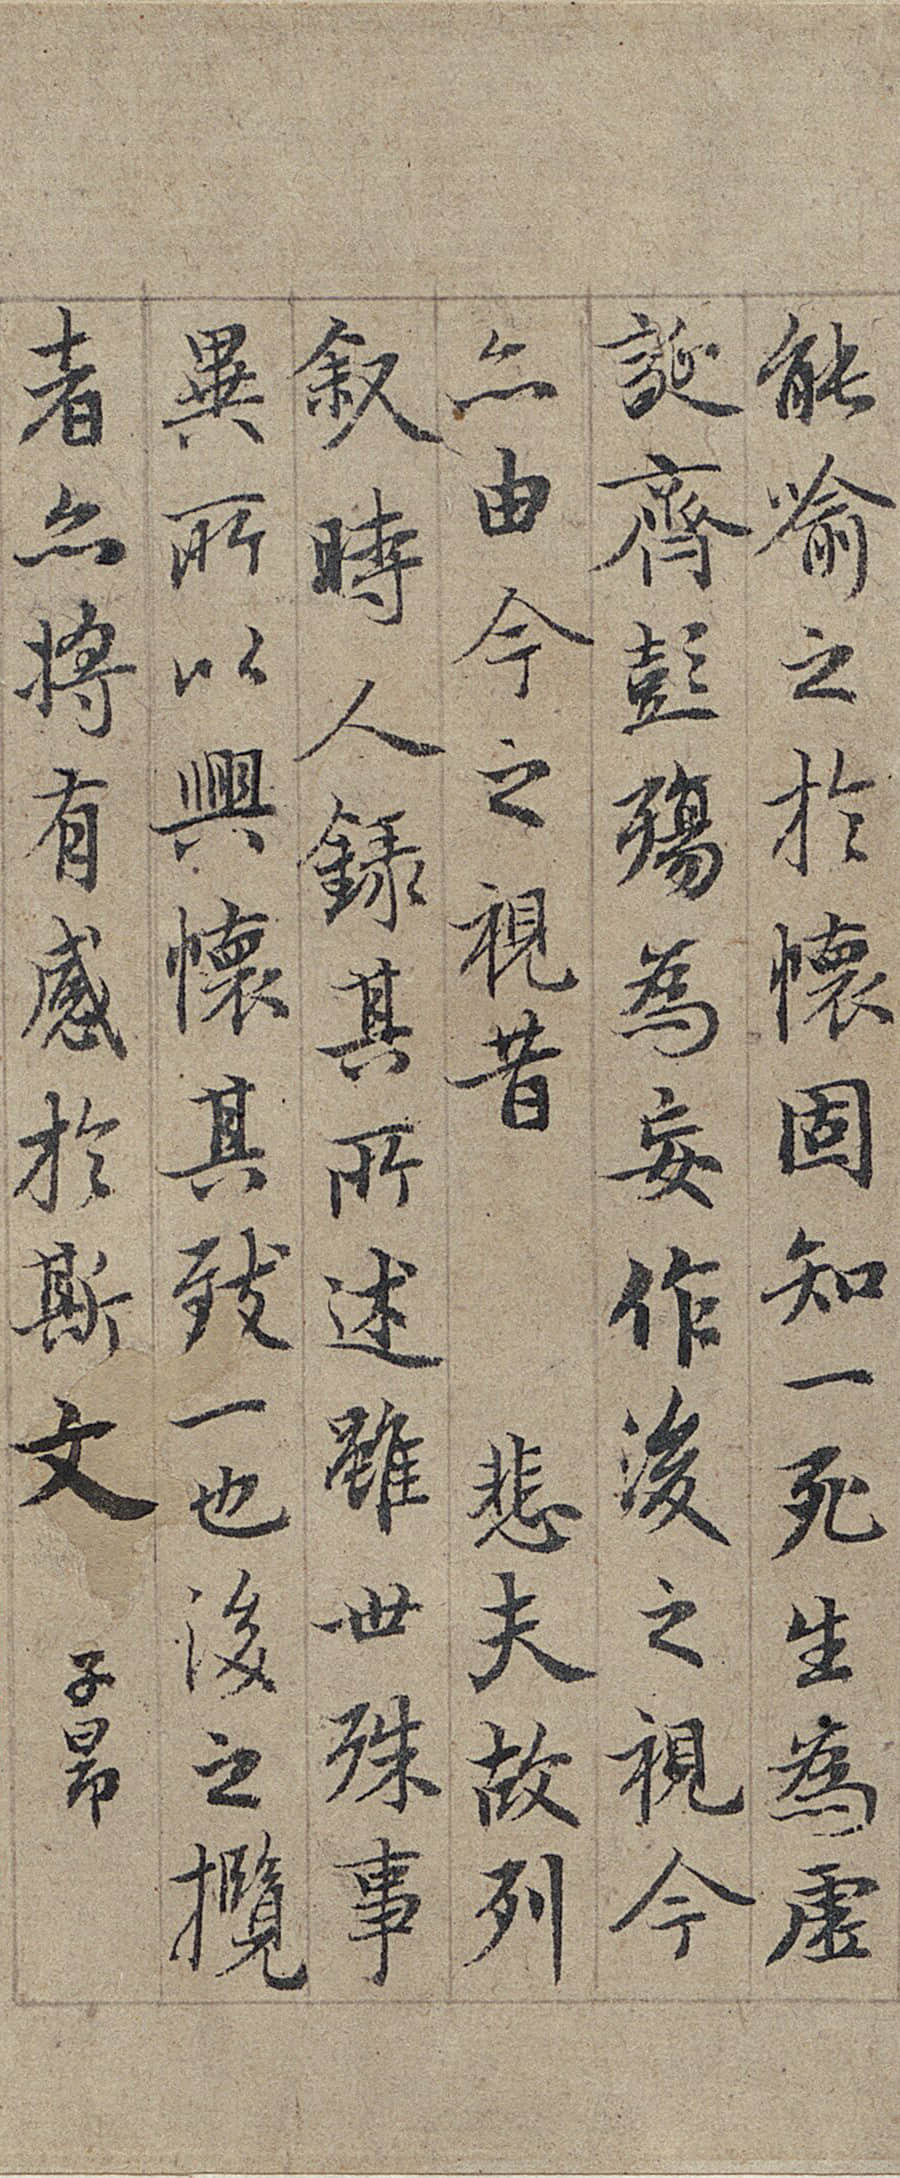 能喻之於懷固知一死生為虛
誕齊彭殤為妄作後之視今
亦由今之視昔 悲夫故列
叙時人録其所述雖世殊事
異所以興懷其致一也後之攬
者亦將有感於斯文 子昂